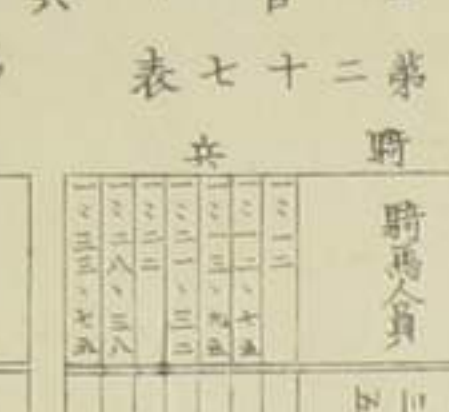 第二十七表
騎兵
騎馬人員
一：一二
一：一二、七五
一：一三、九五
一：二一、三二
一：二二
一：二八、三八
一：三三、七五